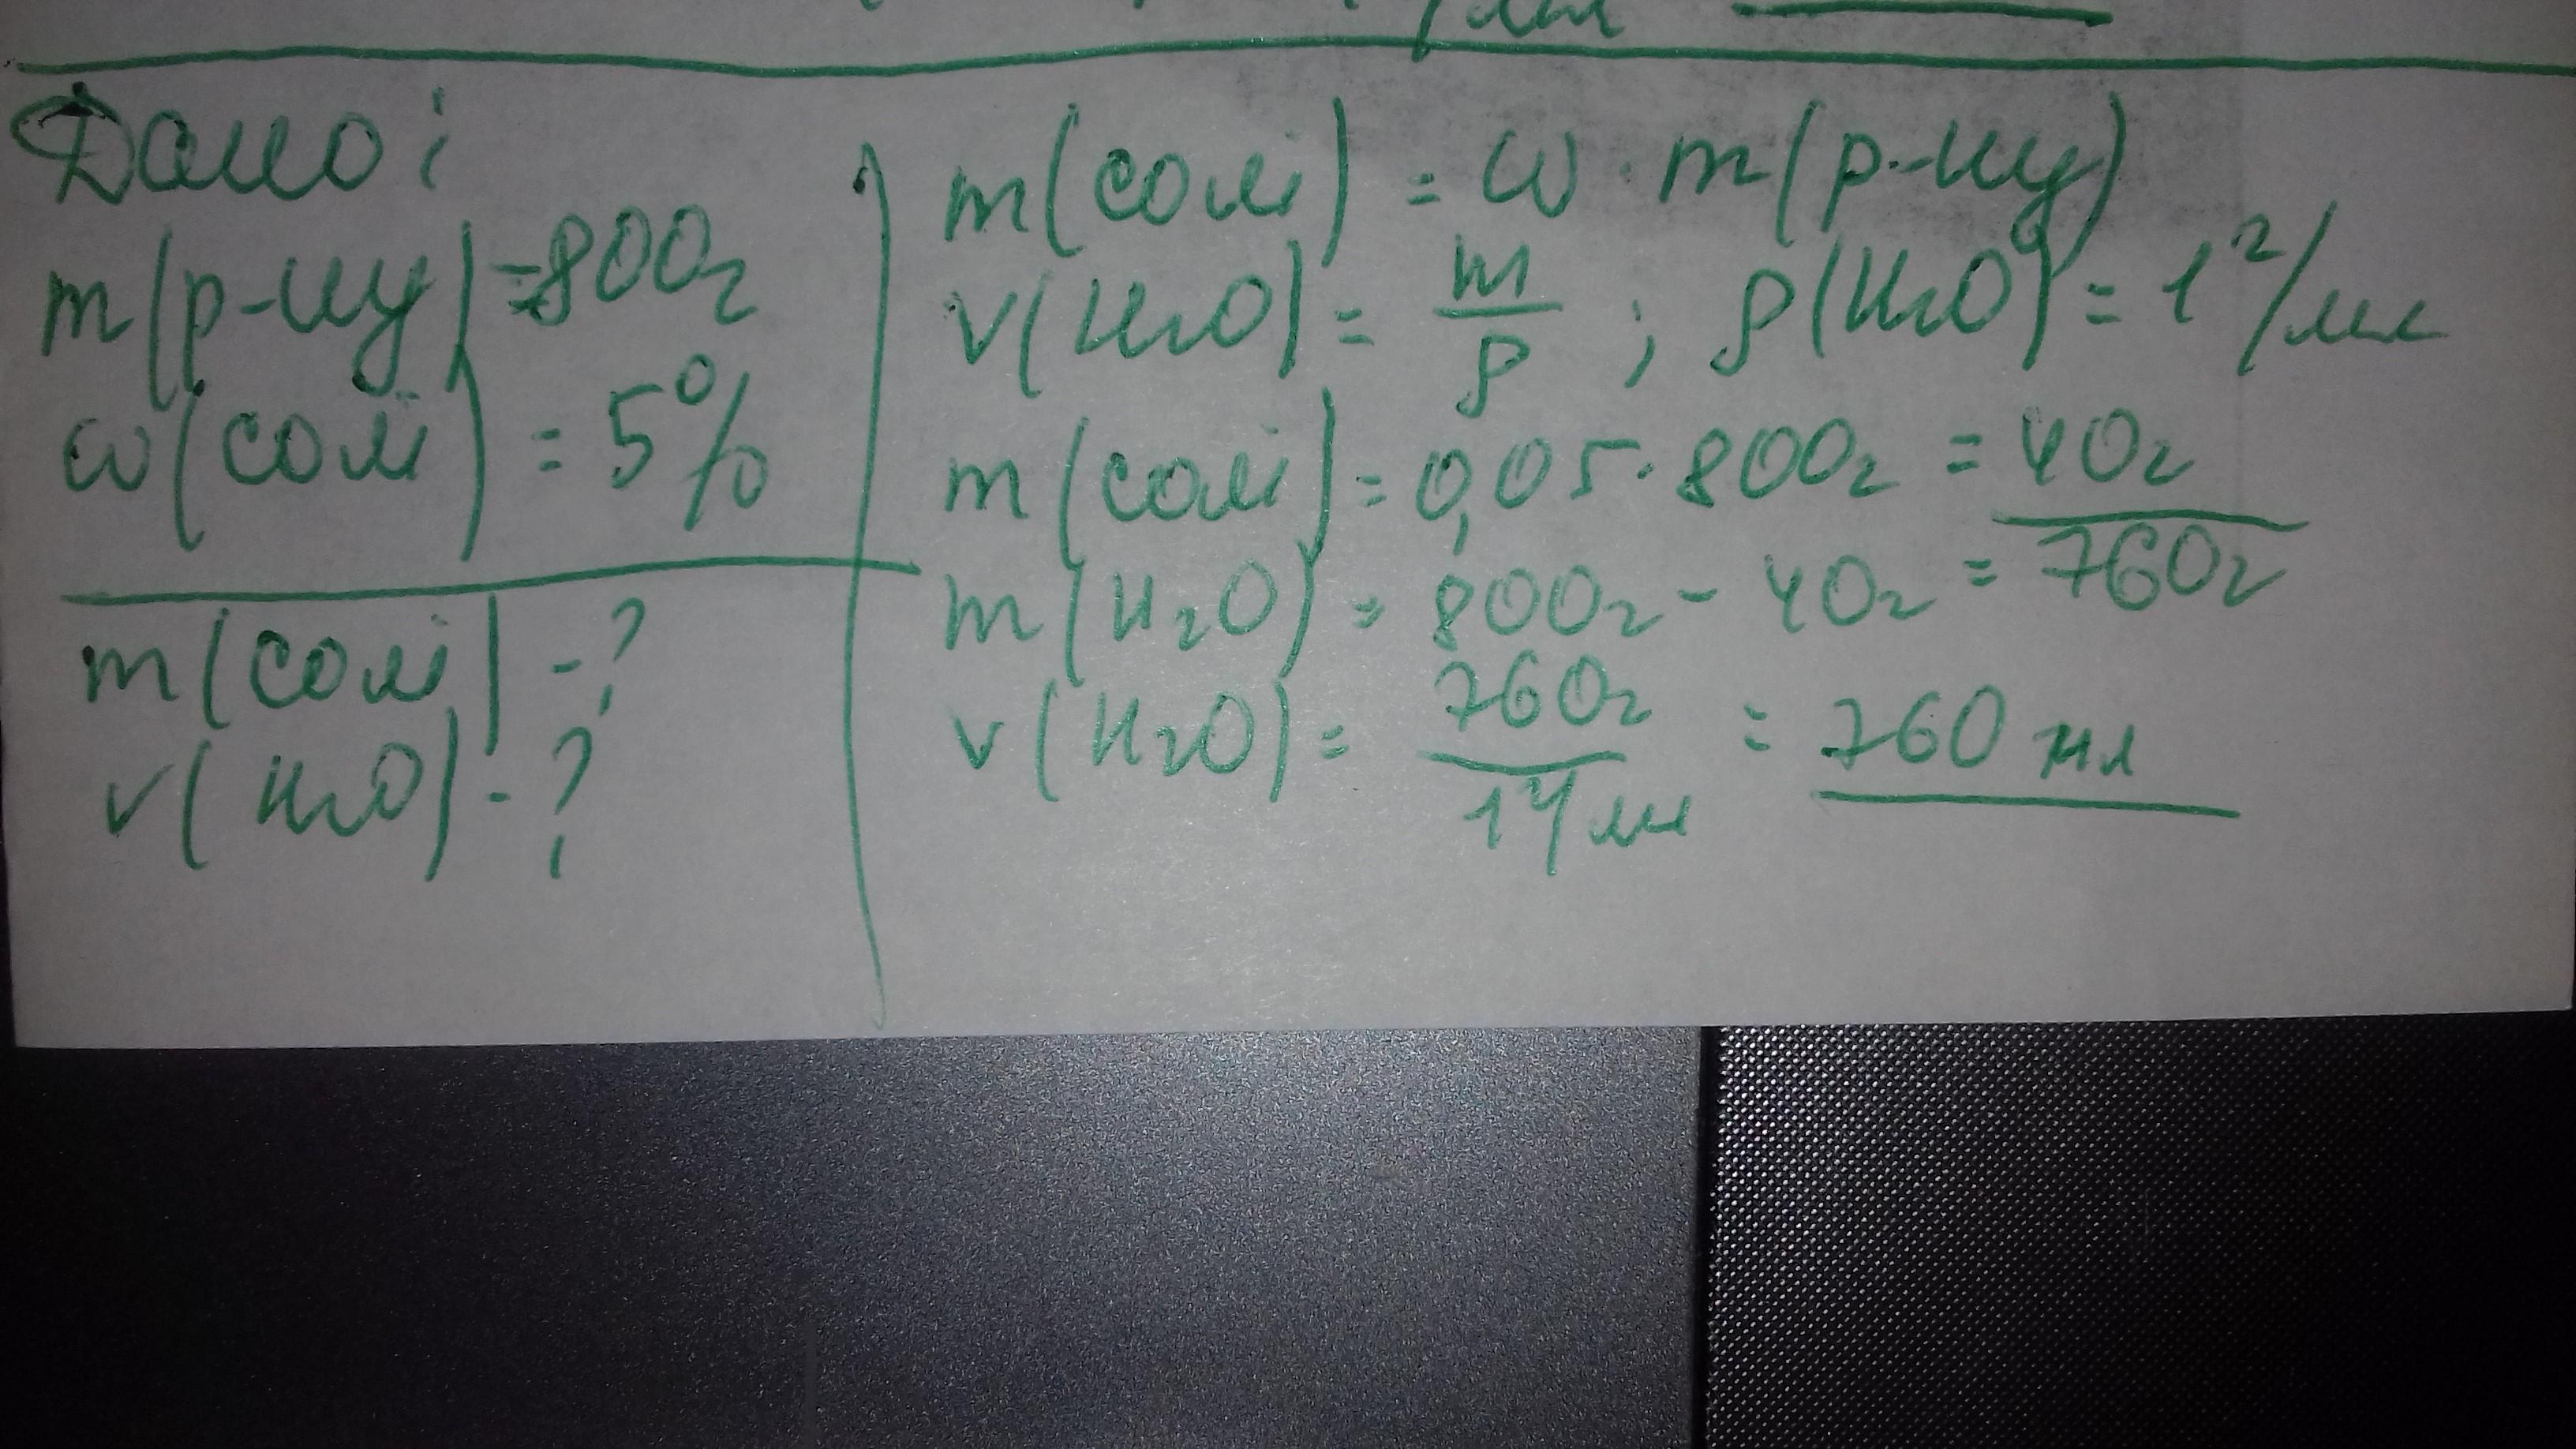 г/мл
Дано:
m(р-ну)=800г
ω(солі) = 5%
m(солі) - ?
v(H2O) - ?
m(солі) = ω · m(р-ну)
v(H2O) = m/ρ ; ρ(H2O) = 1 г/мл
m(солі) = 0,05 · 800г = 40г
m(H2O) = 800г - 40г = 760г
v(H2O) = 760г / 1 г/мл = 760 мл